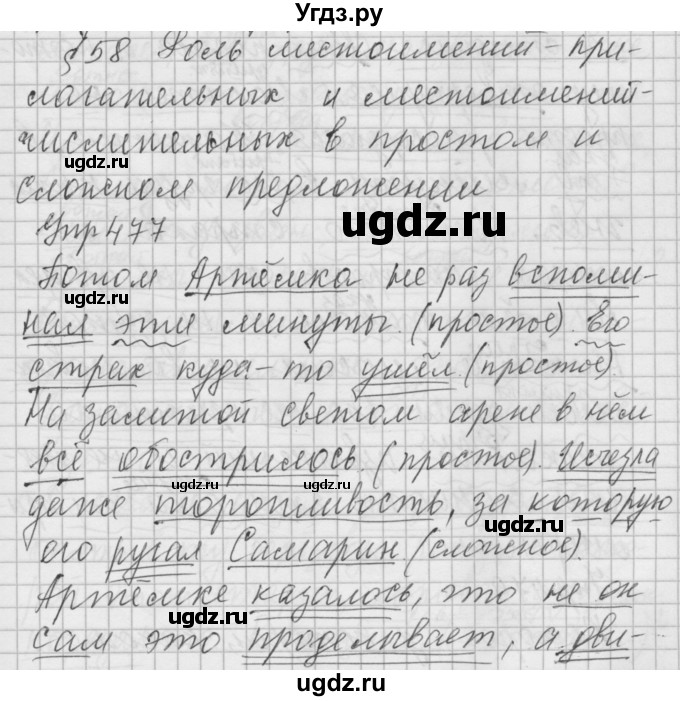 Угдз.ру
§58 Роль местоимений-при-
лагательных и местоимений-
числительных в простом и
ugdz.ru
сложном предложении
ugdz.ru
Упр 477
Потом Артёмка не раз вспоми-
нал эти минуты. (простое). Его
страх куда-то ушёл. (простое)
На залитой светом арене в нём
всё обострилось. (простое). Исчезла
ugdz.ru ugdz.ru
даже торопливость, за которую
ugdz.ru
его ругал Самарин (сложное).
Артёмке казалось, что не он
ugdz.ru
сам это проделывает, а дви-
ugdz.ru